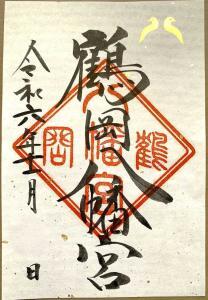 鶴岡八幡宮
令和六年十二月 日